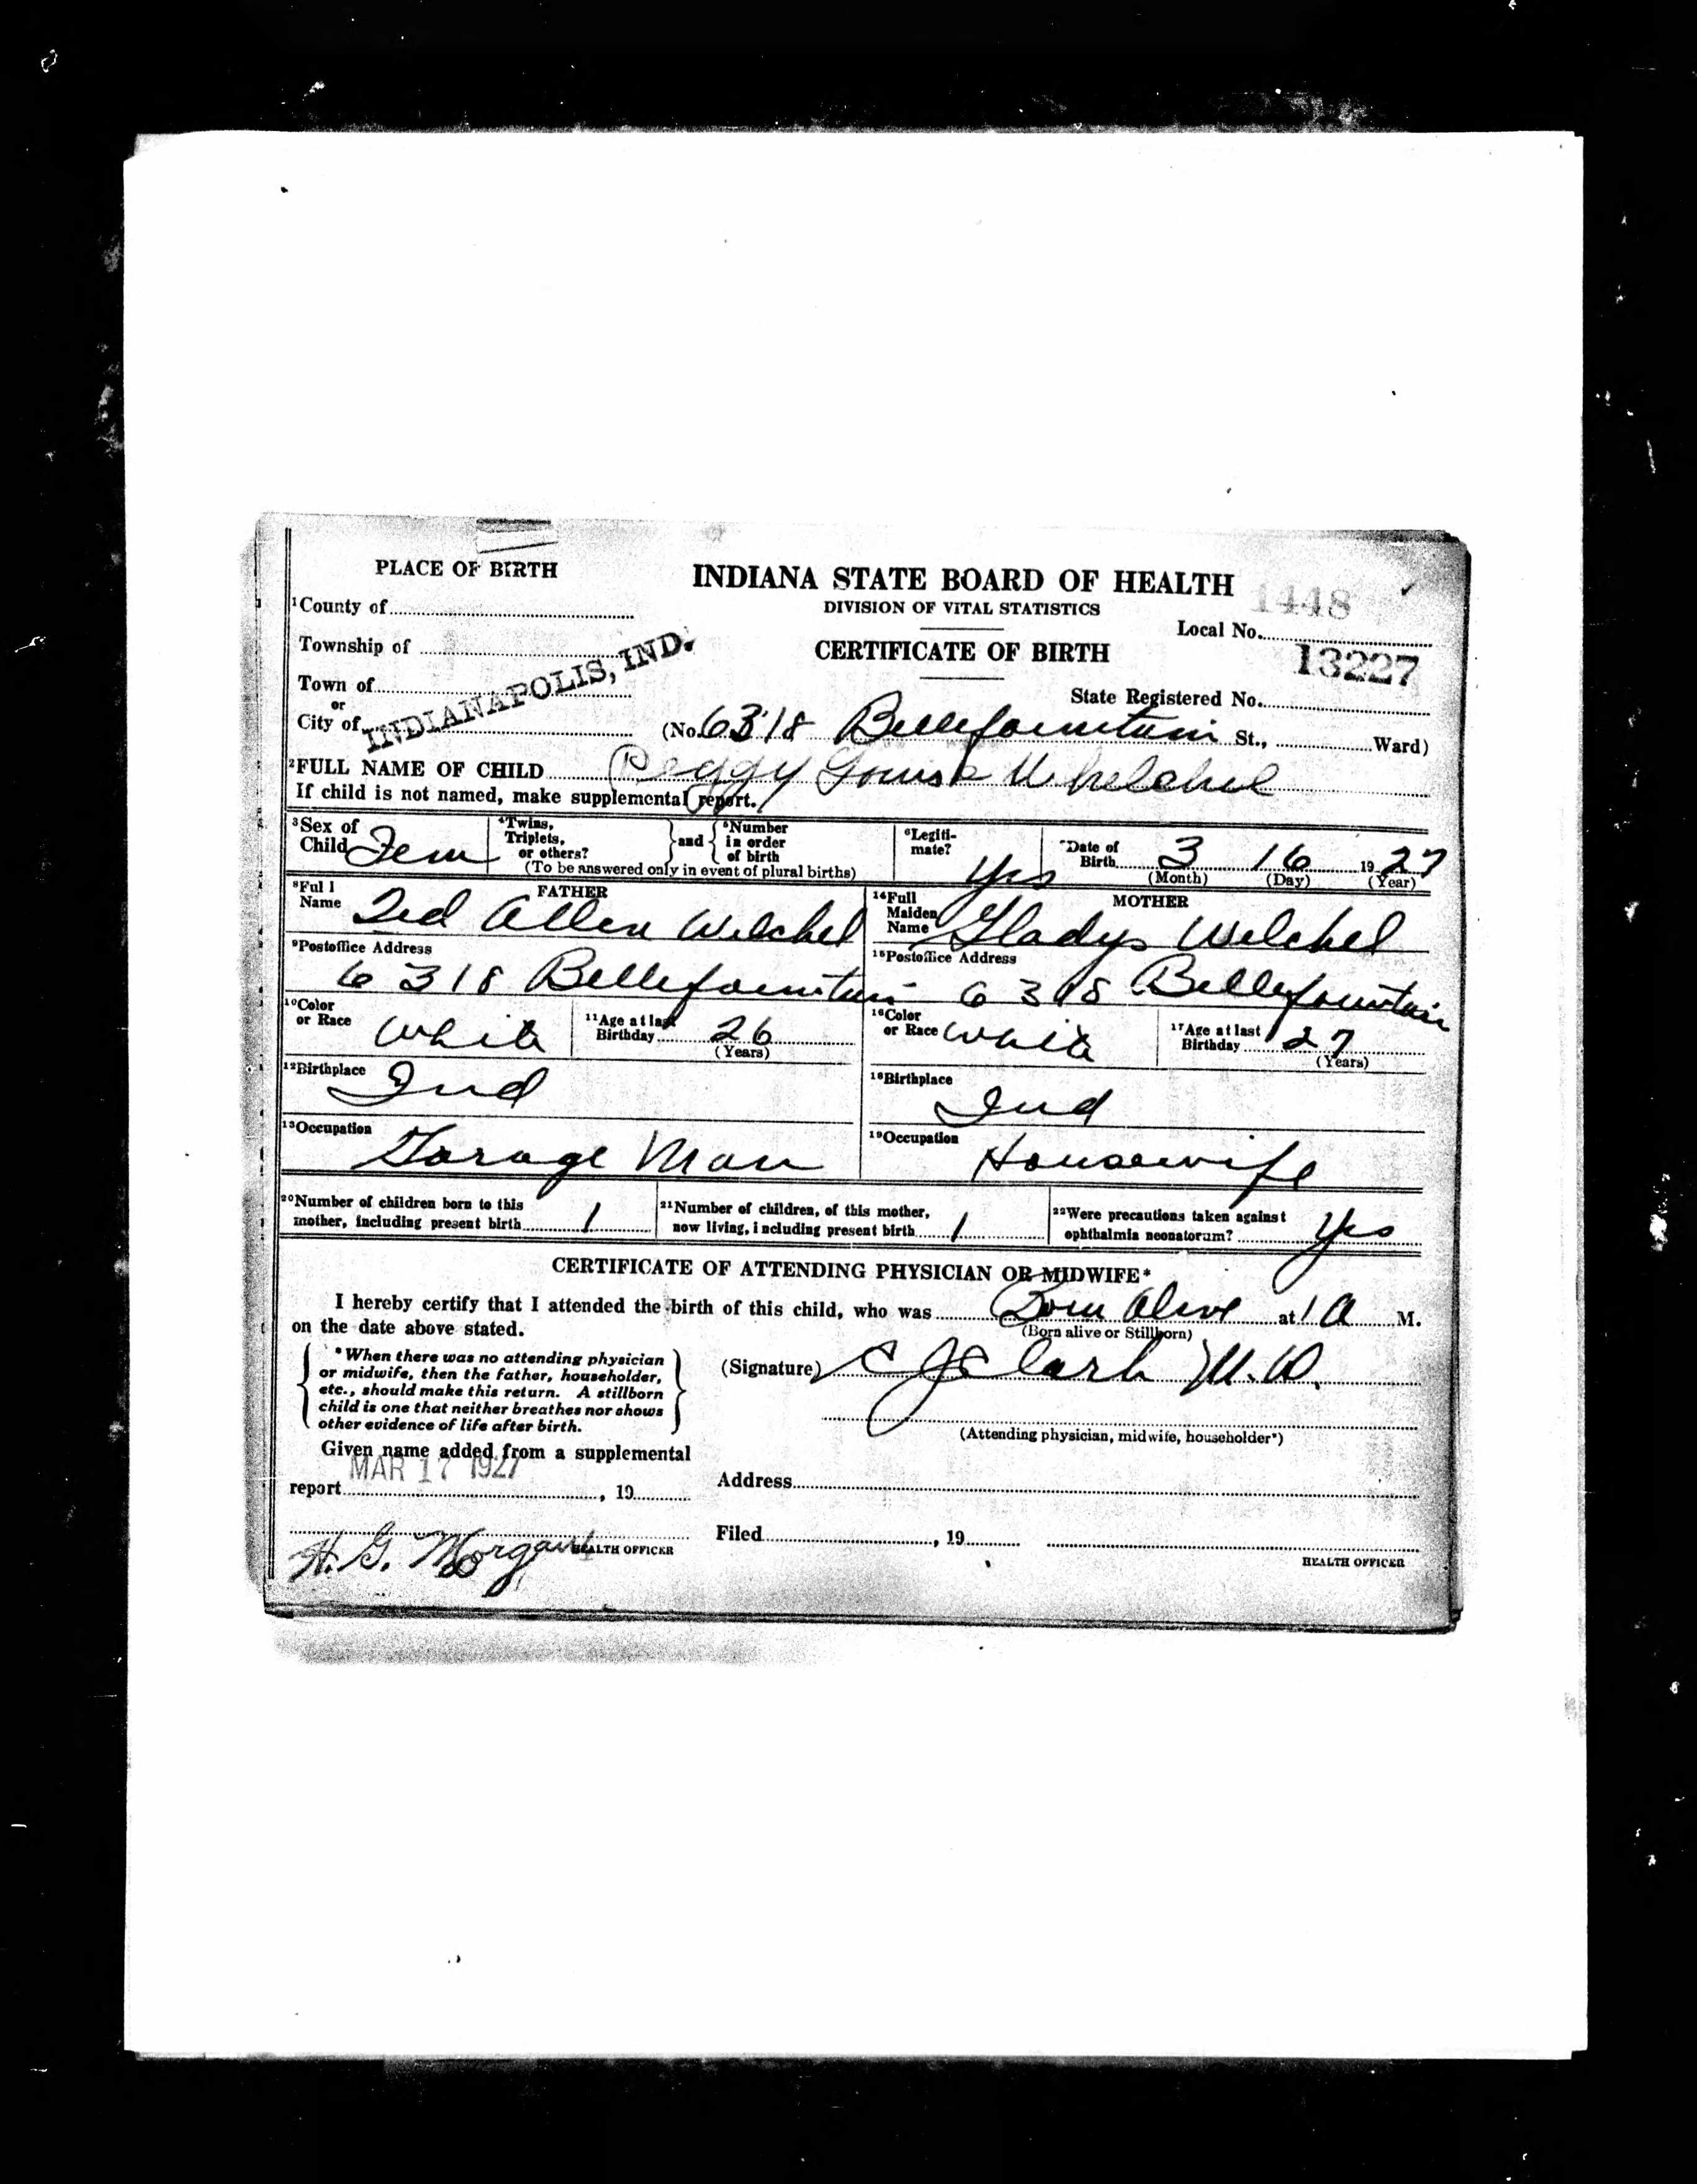 PLACE OF BIRTH
INDIANA STATE BOARD OF HEALTH
DIVISION OF VITAL STATISTICS
1448
1County of
Local No.
Township of
CERTIFICATE OF BIRTH
13227
Town of
or
City of INDIANAPOLIS, IND.
State Registered No.
(No. 6318 Bellefountain St., Ward)
2FULL NAME OF CHILD Peggy Louise Whelchel
If child is not named, make supplemental report.
3Sex of Child Fem
4Twins, Triplets, or others? and 5Number in order of birth
(To be answered only in event of plural births)
6Legiti-mate? Yes
7Date of Birth 3 16 1927
(Month) (Day) (Year)
FATHER
8Full Name Ted Allen Welchel
MOTHER
14Full Maiden Name Gladys Welchel
9Postoffice Address
6318 Bellefountain
15Postoffice Address
6318 Bellefountain
10Color or Race White
11Age at last Birthday 26
(Years)
16Color or Race White
17Age at last Birthday 27
(Years)
12Birthplace
Ind
18Birthplace
Ind
13Occupation
Garage Man
19Occupation
Housewife
20Number of children born to this
mother, including present birth 1
21Number of children, of this mother,
now living, including present birth 1
22Were precautions taken against
ophthalmia neonatorum? Yes
CERTIFICATE OF ATTENDING PHYSICIAN OR MIDWIFE*
I hereby certify that I attended the birth of this child, who was Born Alive at 1 A M.
on the date above stated.
(Born alive or Stillborn)
*When there was no attending physician
or midwife, then the father, householder,
etc., should make this return. A stillborn
child is one that neither breathes nor shows
other evidence of life after birth.
(Signature) C J Clark M.D.
(Attending physician, midwife, householder*)
Given name added from a supplemental
MAR 17 1927
report , 19
Address
H. G. Morgan
HEALTH OFFICER
Filed , 19
HEALTH OFFICER